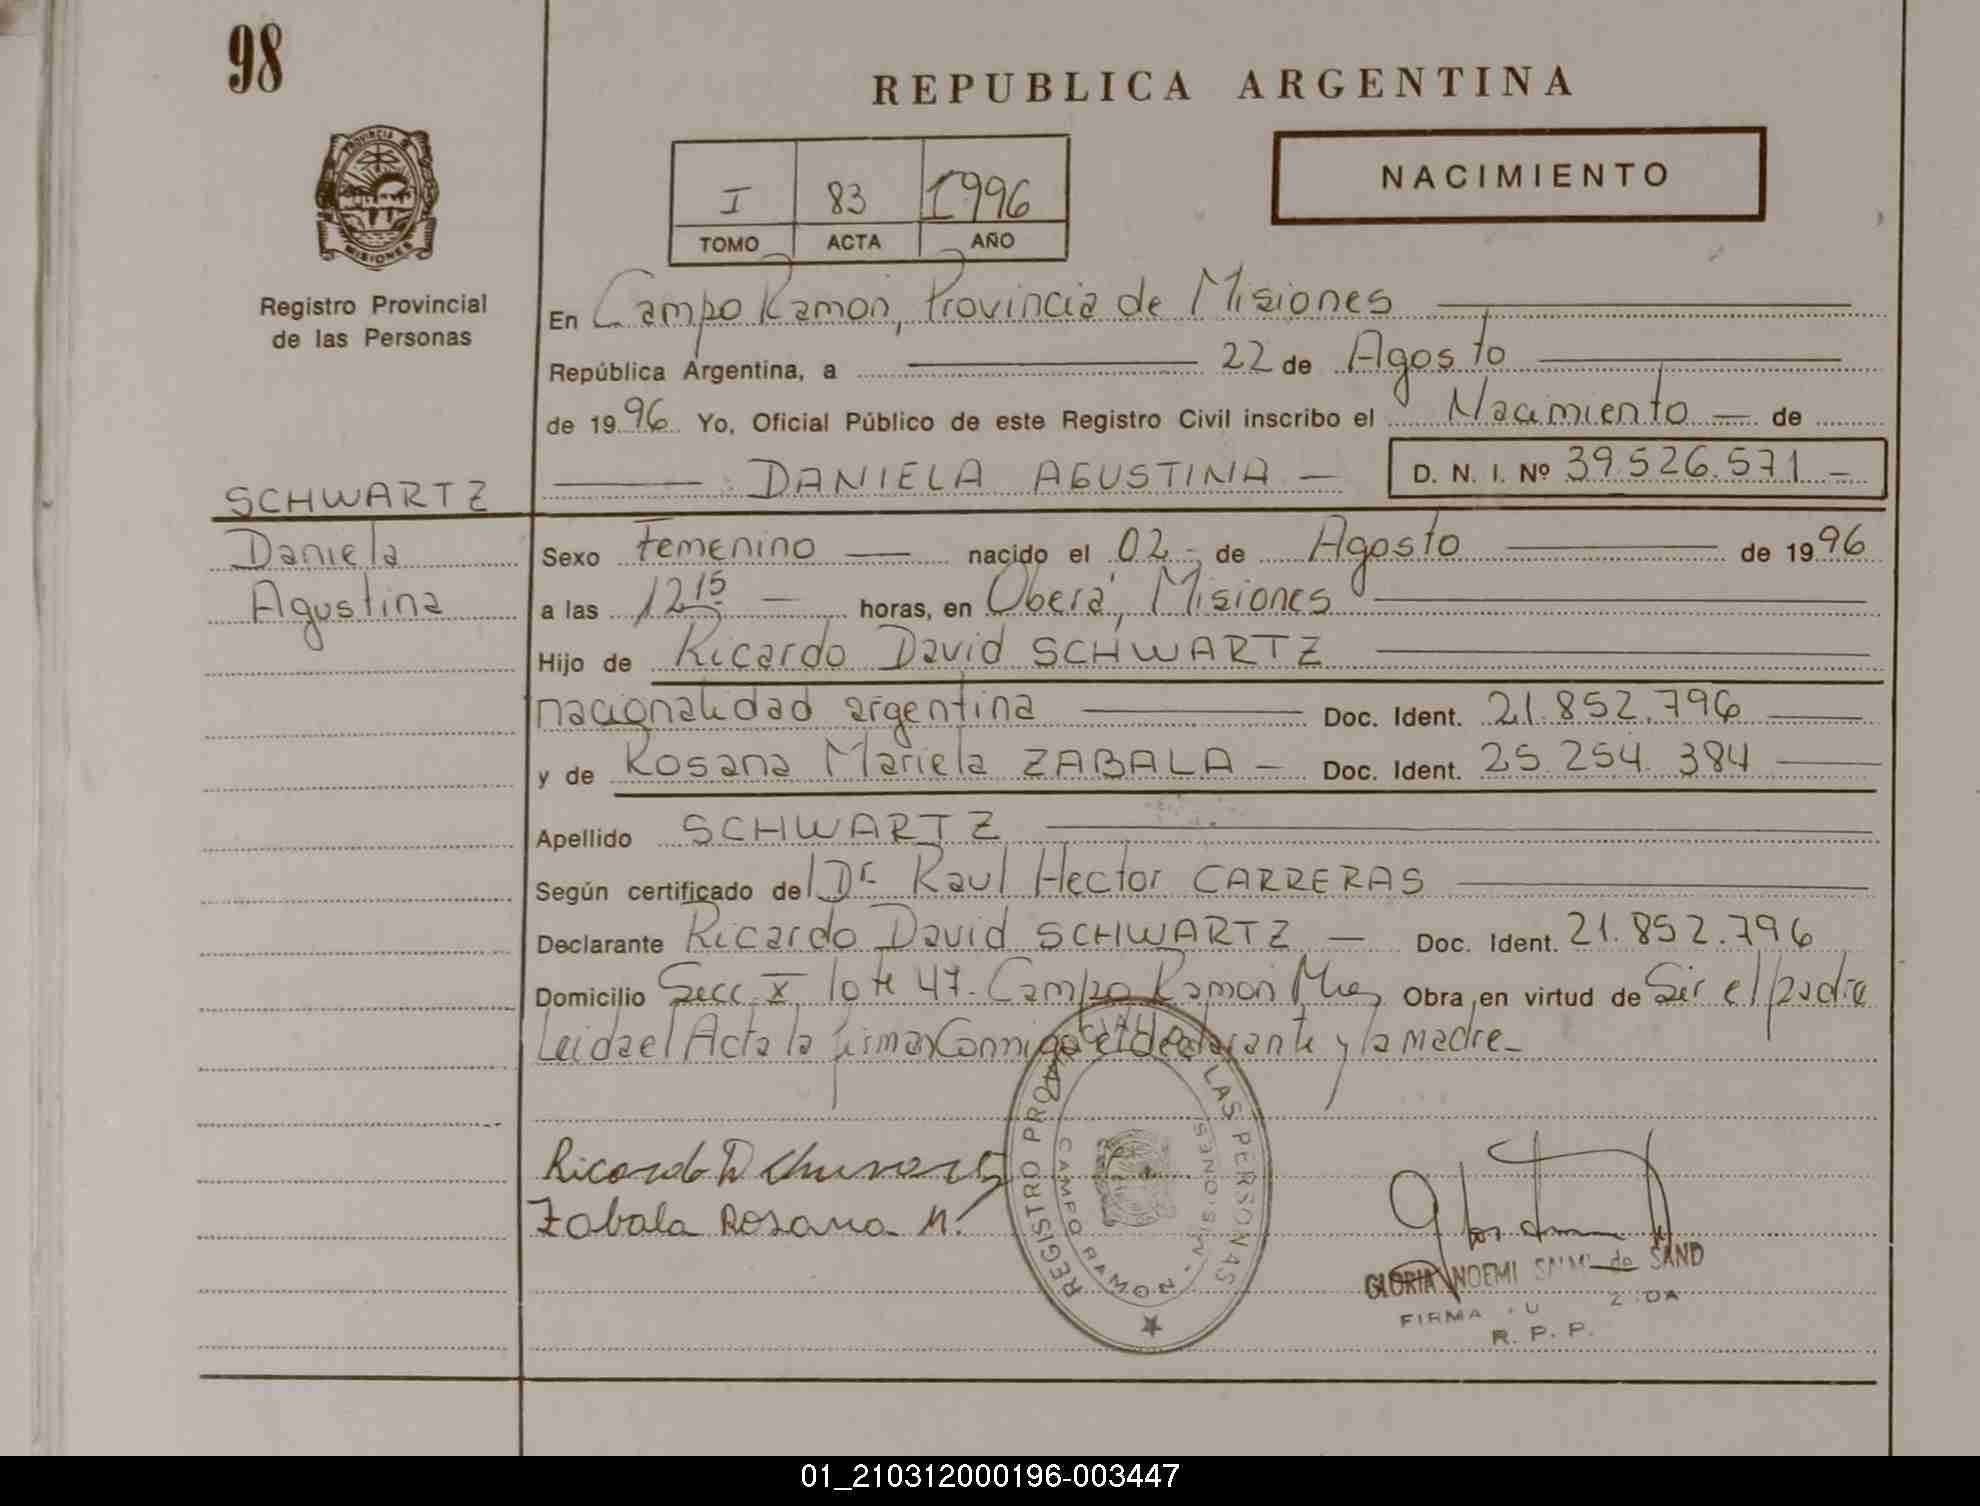 98
REPUBLICA ARGENTINA
PROVINCIA
MISIONES
Registro Provincial
de las Personas
I 83 1996
TOMO ACTA AÑO
NACIMIENTO
En Campo Ramon, Provincia de Misiones
República Argentina, a 22 de Agosto
de 1996 Yo, Oficial Público de este Registro Civil inscribo el Nacimiento — de
DANIELA AGUSTINA — D. N. I. Nº 39.526.571 –
SCHWARTZ
Daniela
Agustina
Sexo Femenino — nacido el 02 - de Agosto — de 1996
a las 12 15 — horas, en Oberá, Misiones
Hijo de Ricardo David SCHWARTZ
nacionalidad argentina — Doc. Ident. 21.852.796
y de Rosana Mariela ZABALA — Doc. Ident. 25.254.384
Apellido SCHWARTZ
Según certificado del Dr Raul Hector CARRERAS
Declarante Ricardo David SCHWARTZ — Doc. Ident. 21.852.796
Domicilio Secc. X lote 47. Campo Ramon Mnes Obra en virtud de Ser el padre
Leida el Acta la firman Conmigo el declarante y la madre_
REGISTRO PROVINCIAL DE LAS PERSONAS
CAMPO RAMON - MISIONES
Ricardo D Schwartz
Zabala Rosana M.
GLORIA NOEMI de SAND
FIRMA
R. P. P.
01_210312000196-003447